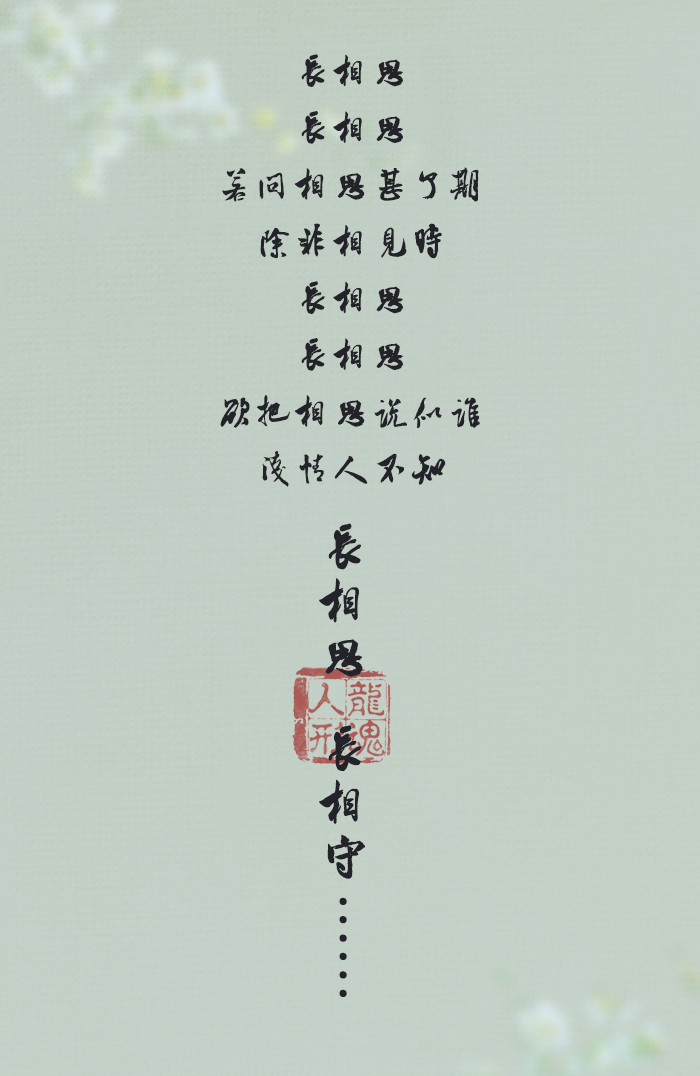 長相思
長相思
若问相思甚了期
除非相見時
長相思
長相思
欲把相思说似誰
淺情人不知
長相思
龍魂人形
長相守
······